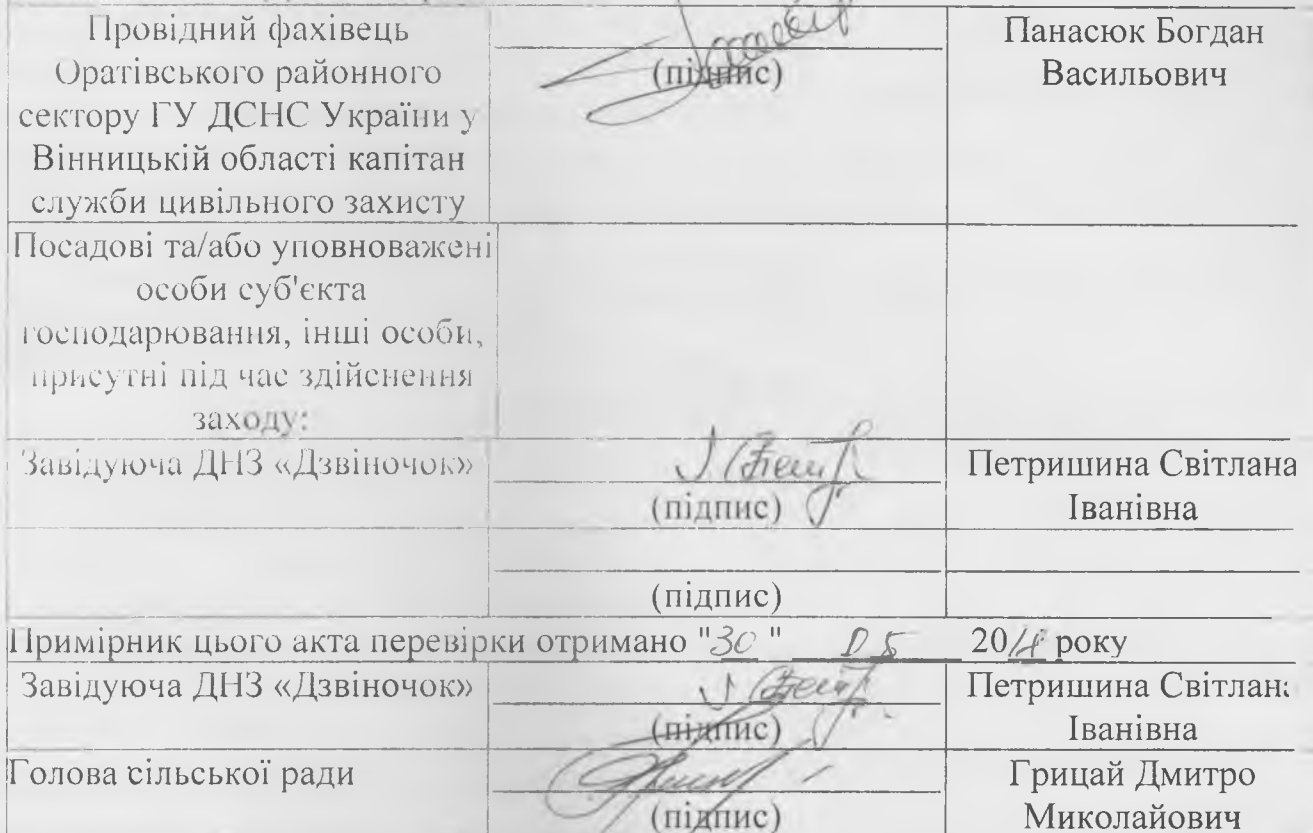 Провідний фахівець
Оратівського районного
сектору ГУ ДСНС України у
Вінницькій області капітан
служби цивільного захисту
(підпис)
Панасюк Богдан
Васильович
Посадові та/або уповноважені
особи суб'єкта
господарювання, інші особи,
присутні під час здійснення
заходу:
Завідуюча ДНЗ «Дзвіночок»
(підпис)
Петришина Світлана
Іванівна
(підпис)
Примірник цього акта перевірки отримано "30" 05 20 року
Завідуюча ДНЗ «Дзвіночок»
(підпис)
Петришина Світлана
Іванівна
Голова сільської ради
(підпис)
Грицай Дмитро
Миколайович